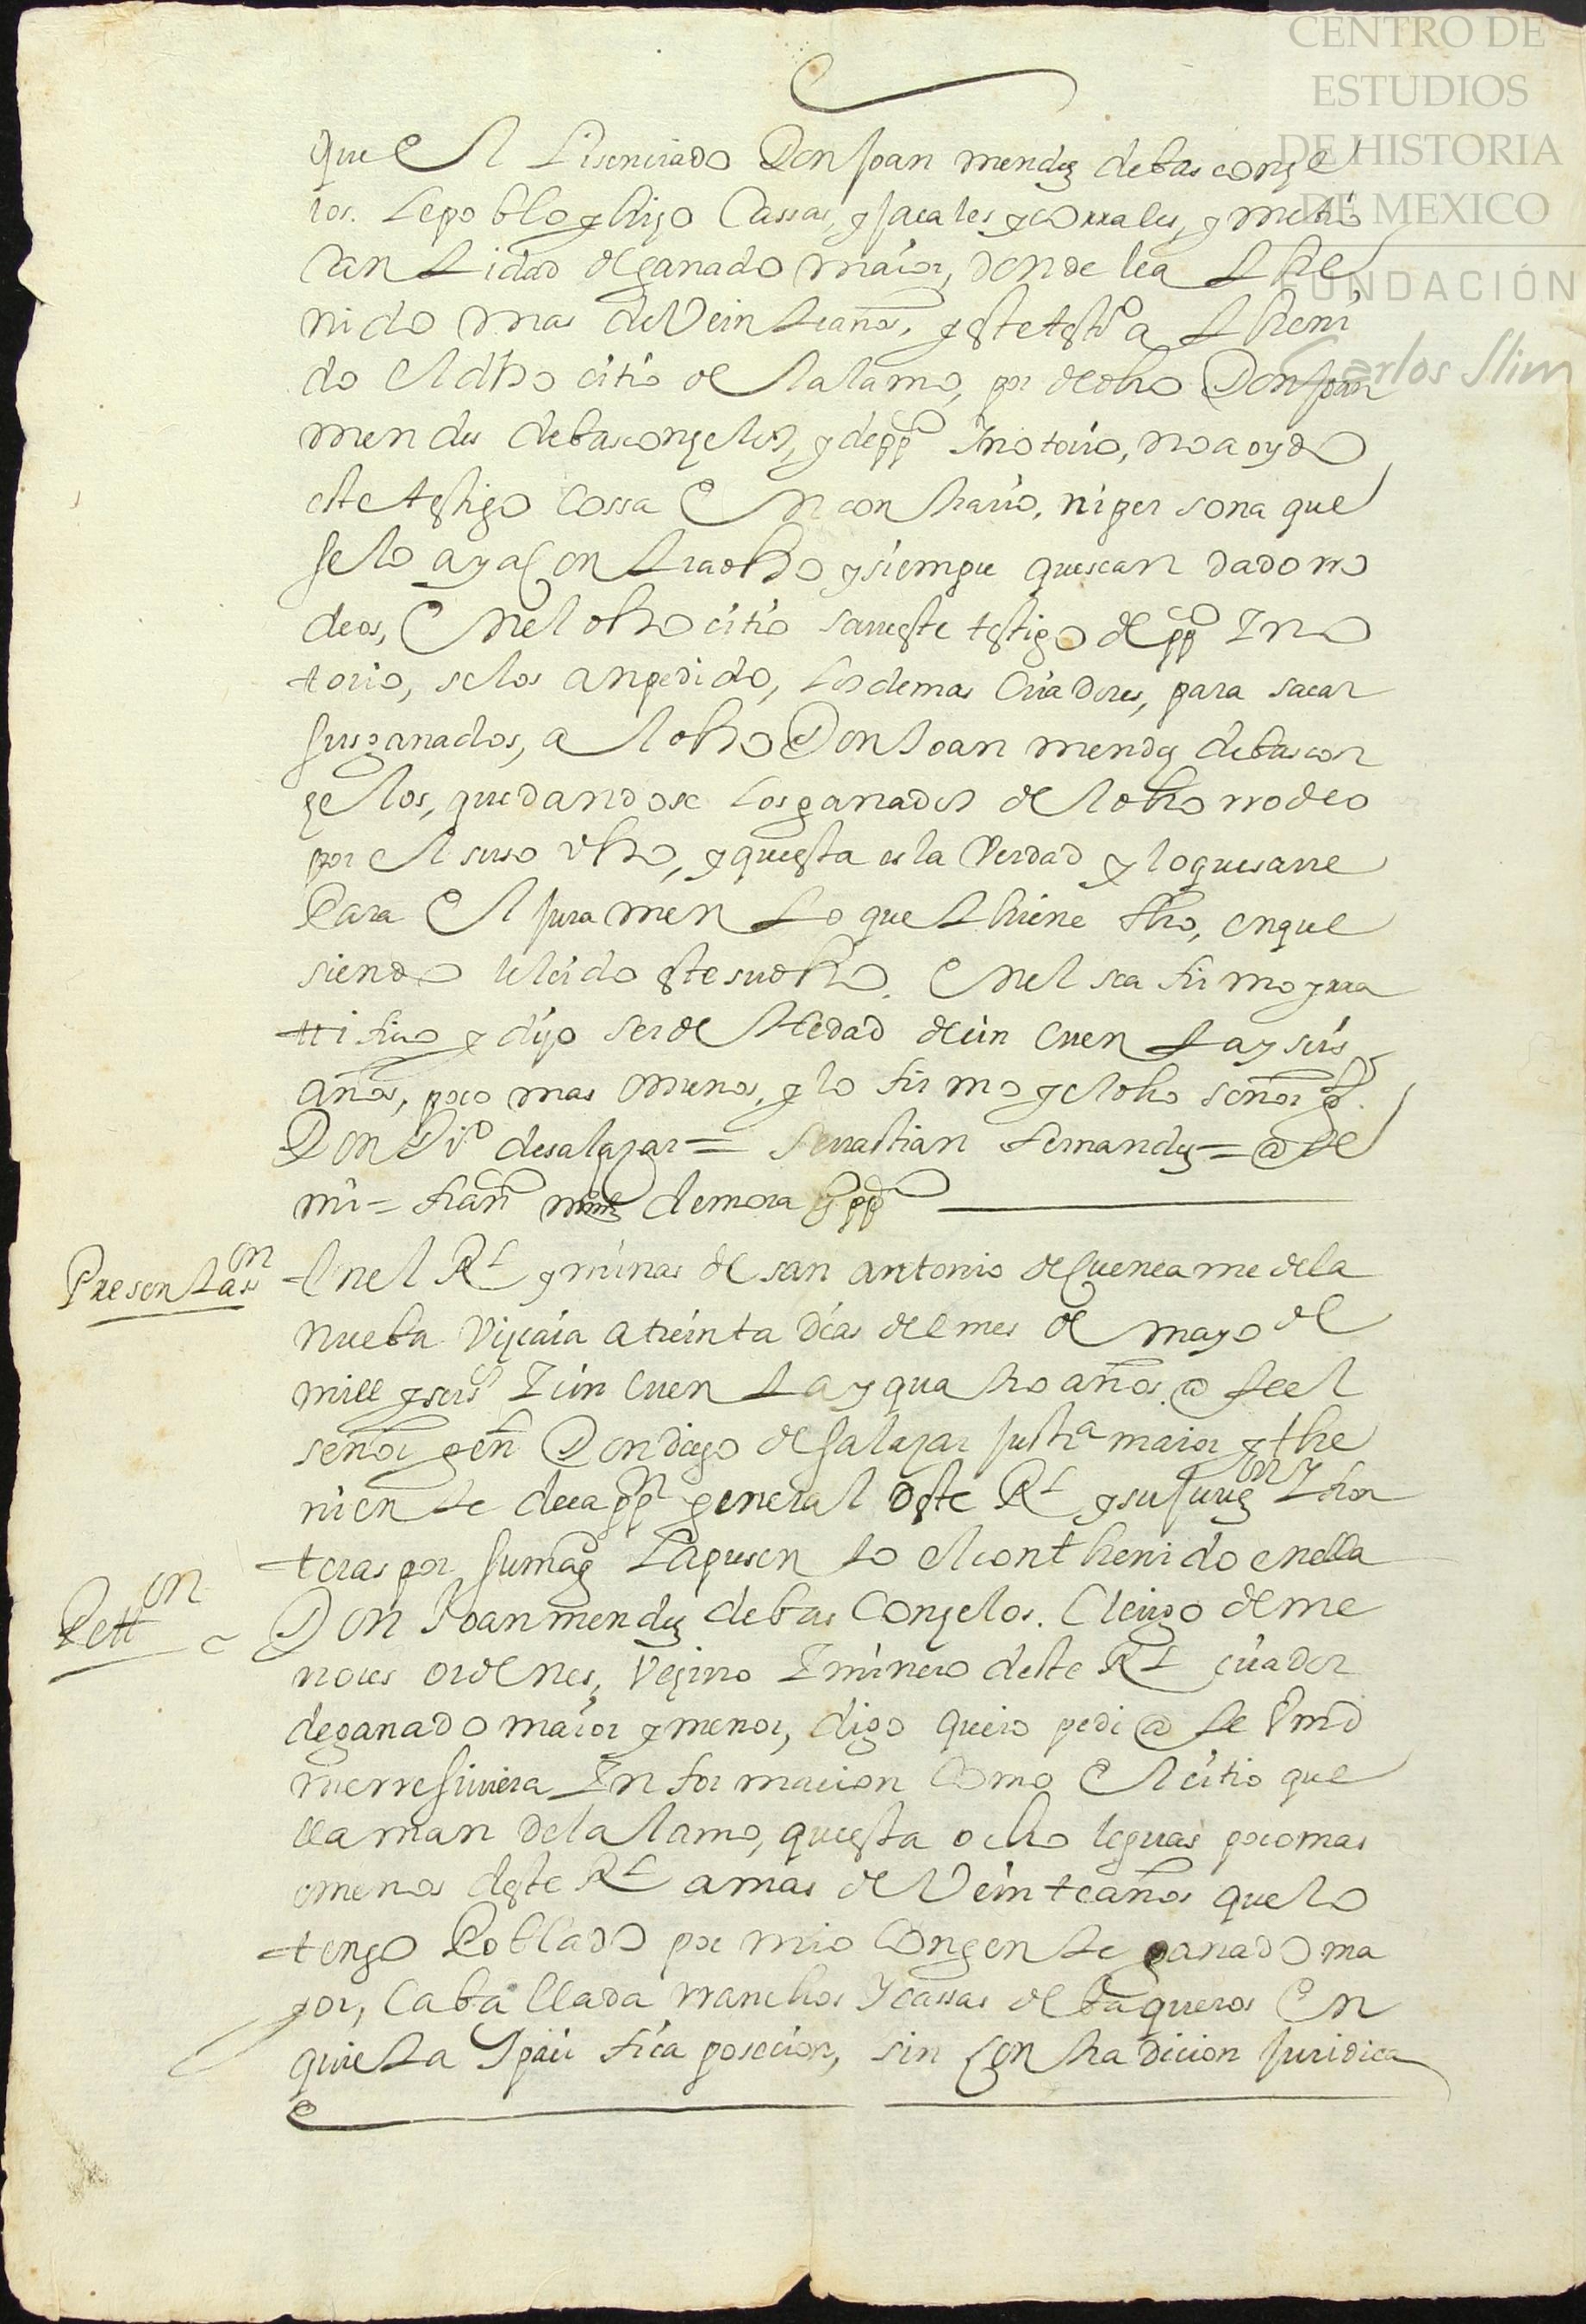 CENTRO DE
ESTUDIOS
DE HISTORIA
DE MEXICO
FUNDACIÓN
Carlos Slim
que el Lisenciado Don Joan mendez debasconçe
los. Lepoblo y hizo Cassas, y jacales y corrales, y metio
cantidad de ganado maior, donde lea the
nido mas de Veinte años, y este testo a theni
do el dho citio del alamo, por de dho Don Joan
mendes debasconçelos, y de ppco Inotorio, no a oydo
este testigo Cossa En contrario, ni persona que
se lo aya Contradho y siempre quesean dado rro
deos, En el dho citio savueste testigo de ppco Ino
torio, selos anpedido, Los demas Criadores, para sacar
sus ganados, al dho Don Joan mendez debascon
çelos, quedandose Los ganados del dho rrodeo
por el suso dho, y questa es la Verdad y lo que save
Para El Juramento que thiene fho, en que
siendo leleido este su dho. En el sea firmo y rra
ttifico y dijo ser de hedad de cincuenta y seis
años, poco mas omenos, y lo firmo y el dho señor
Don Dio de salazar = Sevastian fernandez = @te
mi = fran mrnz de mora
Presentaon
En el Rl y minas de san antonio de Cuencame de la
nueba Vizcaia a treinta dias del mes de mayo de
mill y seiss I cincuenta y quatro años. @te el
señor gen Don diego de Salazar justa maior y the
niente de cappn general deste Rl y su jurion I fron
teras por su magd La presento el conthenido en ella
Petton
Don Joan mendez debasConçelos. Clerigo de me
nores ordenes, Vezino I minero deste Rl criador
de ganado maior y menor, digo quiero pedi @te Vmd
merresiviera Informacion Como el citio que
llaman del alamo, questa ocho leguas poco mas
omenos deste Rl a mas de Veinte años que lo
tengo Poblado por mio Con gente ganado ma
yor, Caballada rranchos Y cassas de baqueros En
quieta Y pacifica posecion, sin Contradicion Juridica